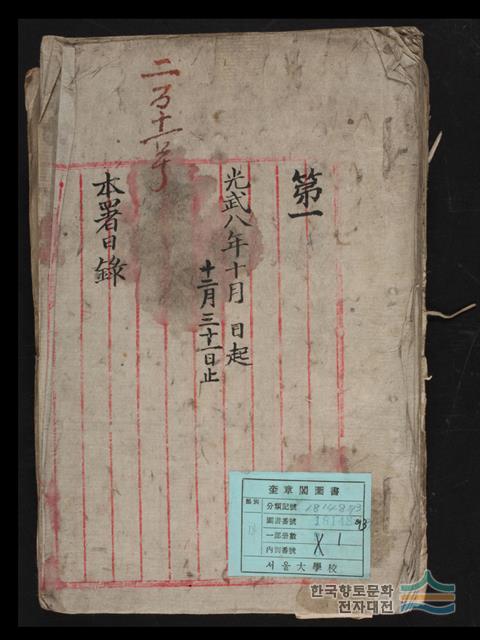 第一
光武八年十月 日起
十二月三十一日止
本署日錄
奎章閣圖書
部別
分類記號
圖書番號
一部册數
1
內譯番號
서울大學校
한국향토문화
전자대전